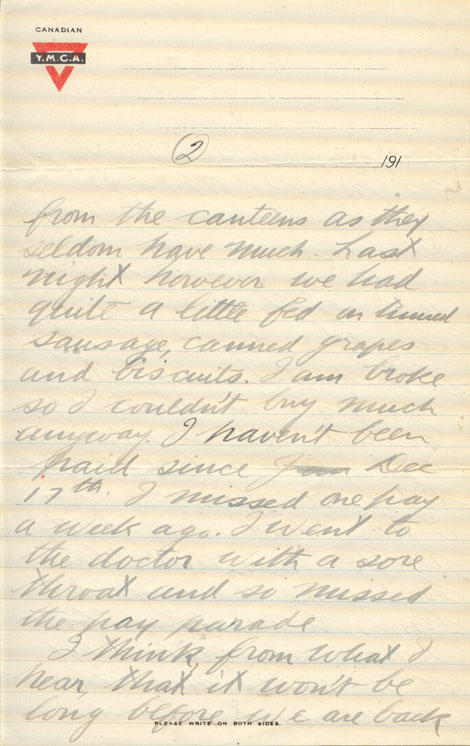 CANADIAN
Y.M.C.A.
2
191
from the canteens as they
seldom have much. Last
night however we had
quite a little fed on tinned
sausage, canned grapes
and biscuits. I am broke
so I couldn't buy much
anyway. I haven't been
paid since Jan Dec
17th. I missed one pay
a week ago. I went to
the doctor with a sore
throat and so missed
the pay parade.
I think, from what I
hear, that it won't be
long before we are back
PLEASE WRITE ON BOTH SIDES.